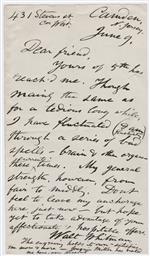 431 Stevens st
cor West.
Camden,
N Jersey,
June 9,
Dear friend,
Yours of 4th has
reach'd me. Though
much the same as
for a tedious long while,
I have fluctuated
through a series of bad
spells — brain & the organs
these times. My general
strength, however, from
fair to middly. Don't
feel to leave my anchorage
here just now — but hope
yet to take advantage of your
affectionate & hospitable offer
Walt Whitman